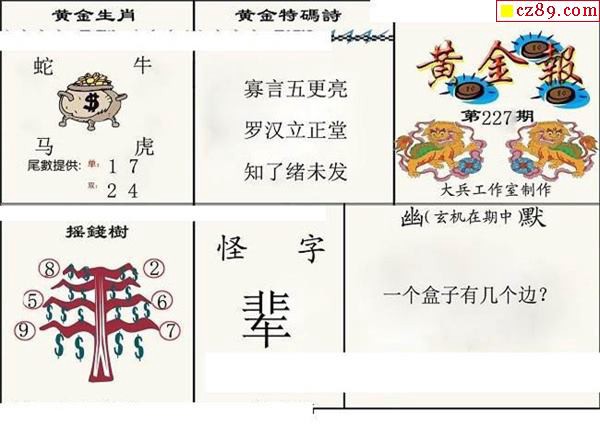 黄金生肖
蛇 牛
马 虎
尾數提供: 单: 1 7
双: 2 4
黄金特碼詩
寡言五更亮
罗汉立正堂
知了绪未发
cz89.com
黄金報
第227期
大兵工作室制作
摇錢樹
⑧ ②
⑤ ⑥
⑨ ⑦
怪字
辈
幽(玄机在期中)默
一个盒子有几个边?